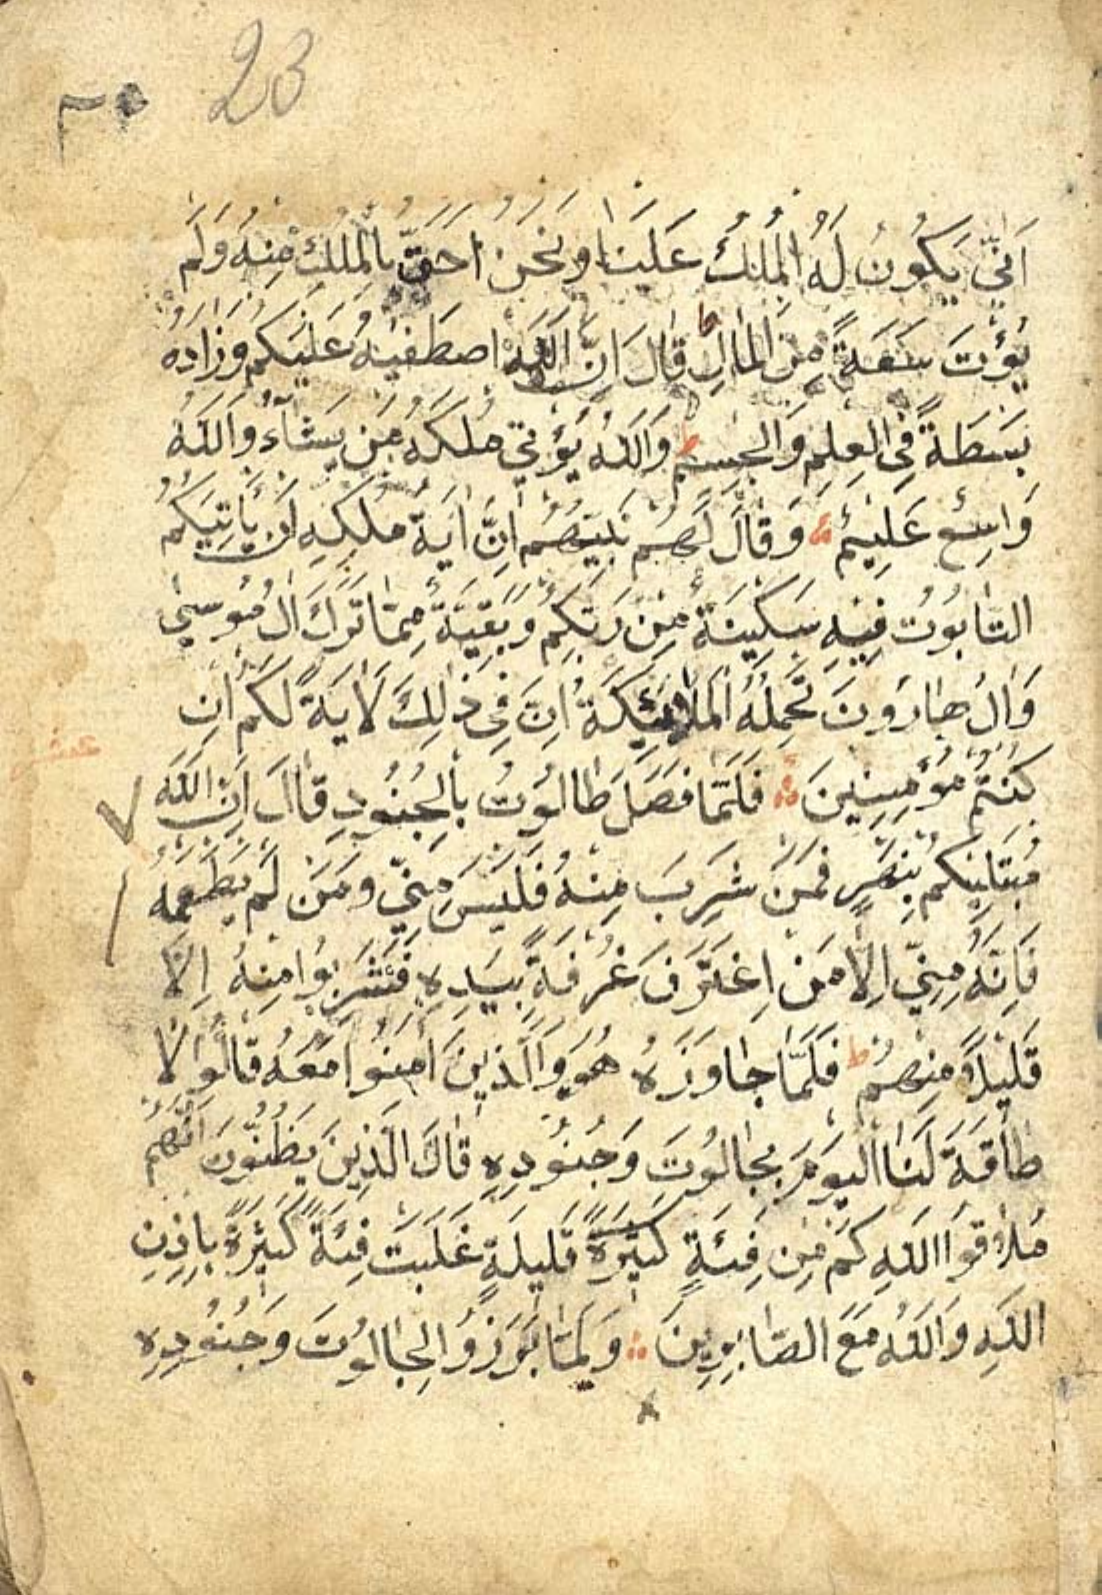 23
٣٠
اَنّٰى يَكُونُ لَهُ الْمُلْكُ عَلَيْنَا وَنَحْنُ اَحَقُّ بِالْمُلْكِ مِنْهُ وَلَمْ
يُؤْتَ سَعَةً مِنَ الْمَالِ ط قَالَ اِنَّ اللّٰهَ اصْطَفٰيهُ عَلَيْكُمْ وَزَادَهُ
بَسْطَةً فِى الْعِلْمِ وَالْجِسْمِ ط وَاللّٰهُ يُؤْتِى مُلْكَهُ مَنْ يَشَاءُ وَاللّٰهُ
وَاسِعٌ عَلِيمٌ وَقَالَ لَهُمْ نَبِيُّهُمْ اِنَّ اٰيَةَ مُلْكِهِ اَنْ يَأْتِيَكُمُ
التَّابُوتُ فِيهِ سَكِينَةٌ مِنْ رَبِّكُمْ وَبَقِيَّةٌ مِمَّا تَرَكَ اٰلُ مُوسٰى
وَاٰلُ هَارُونَ تَحْمِلُهُ الْمَلَائِكَةُ اِنَّ فِى ذٰلِكَ لَاٰيَةً لَكُمْ اِنْ
عشر
كُنْتُمْ مُؤْمِنِينَ فَلَمَّا فَصَلَ طَالُوتُ بِالْجُنُودِ قَالَ اِنَّ اللّٰهَ
مُبْتَلِيكُمْ بِنَهَرٍ فَمَنْ شَرِبَ مِنْهُ فَلَيْسَ مِنِّى وَمَنْ لَمْ يَطْعَمْهُ
فَاِنَّهُ مِنِّى اِلَّا مَنْ اِغْتَرَفَ غُرْفَةً بِيَدِهِ فَشَرِبُوا مِنْهُ اِلَّا
قَلِيلًا مِنْهُمْ ط فَلَمَّا جَاوَزَهُ هُوَ وَالَّذِينَ اٰمَنُوا مَعَهُ قَالُوا لَا
طَاقَةَ لَنَا الْيَوْمَ بِجَالُوتَ وَجُنُودِهِ قَالَ الَّذِينَ يَظُنُّونَ اَنَّهُمْ
مُلَاقُوا اللّٰهِ كَمْ مِنْ فِئَةٍ كَثِيرَةً قَلِيلَةٍ غَلَبَتْ فِئَةً كَثِيرَةً بِاِذْنِ
اللّٰهِ وَاللّٰهُ مَعَ الصَّابِرِينَ وَلَمَّا بَرَزُوا لِجَالُوتَ وَجُنُودِهِ